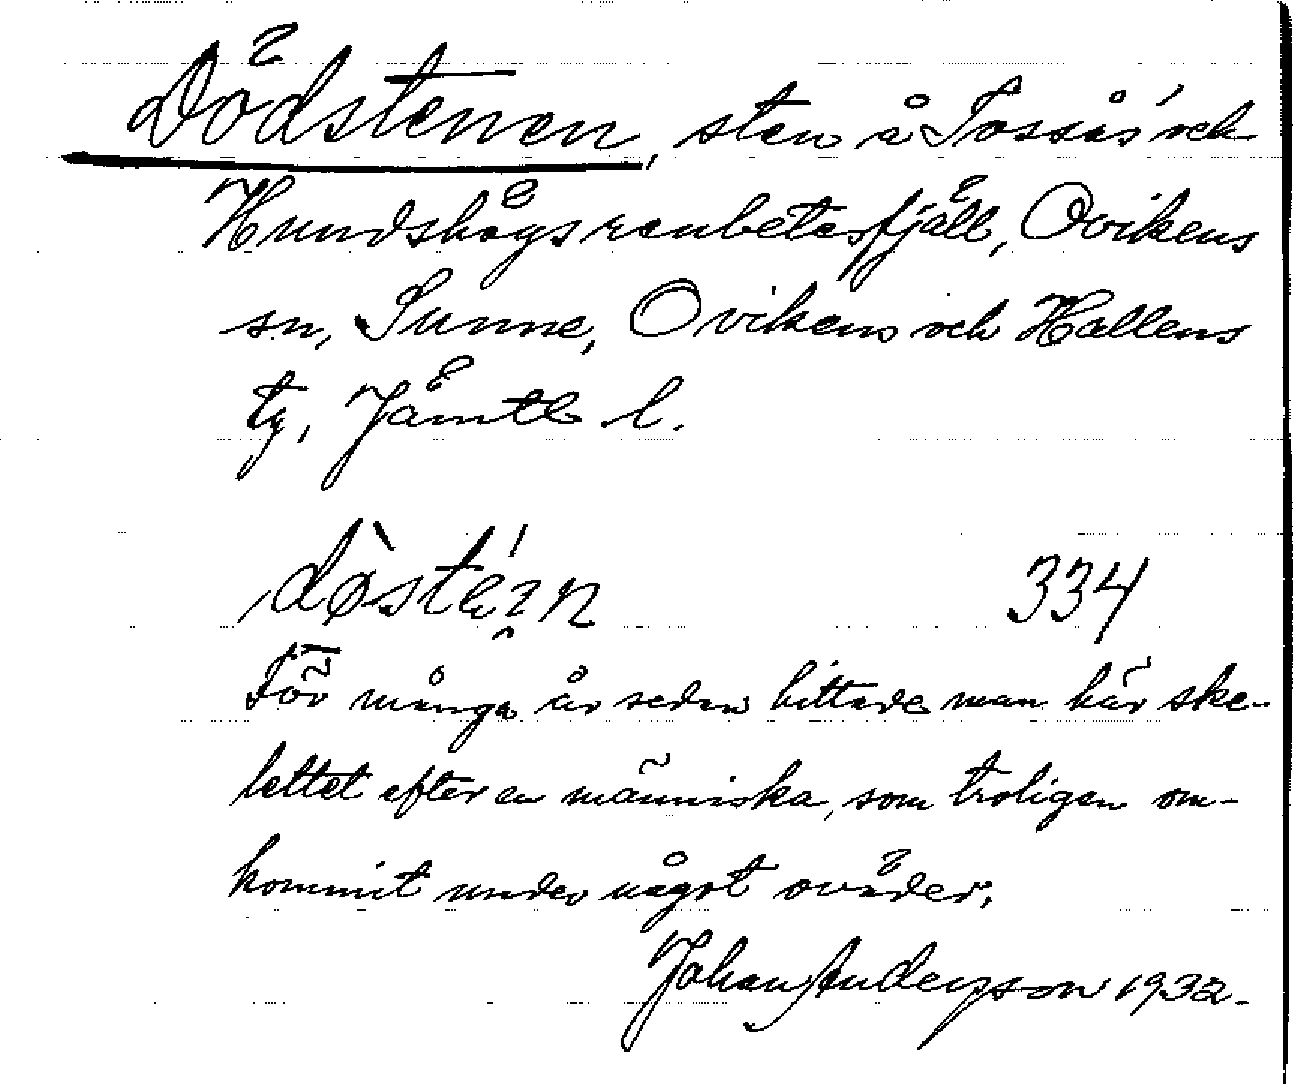 Dödstenen, sten å Tossås' och
Hundshögs renbetesfjäll, Ovikens
sn, Sunne, Ovikens och Hallens
tg, Jämtl l.
dø̀sté̩ꝛn 334
För många år sedan hittade man här ske-
lettet efter en människa, som troligen om-
kommit under något oväder.
Johan Anderson 1932.